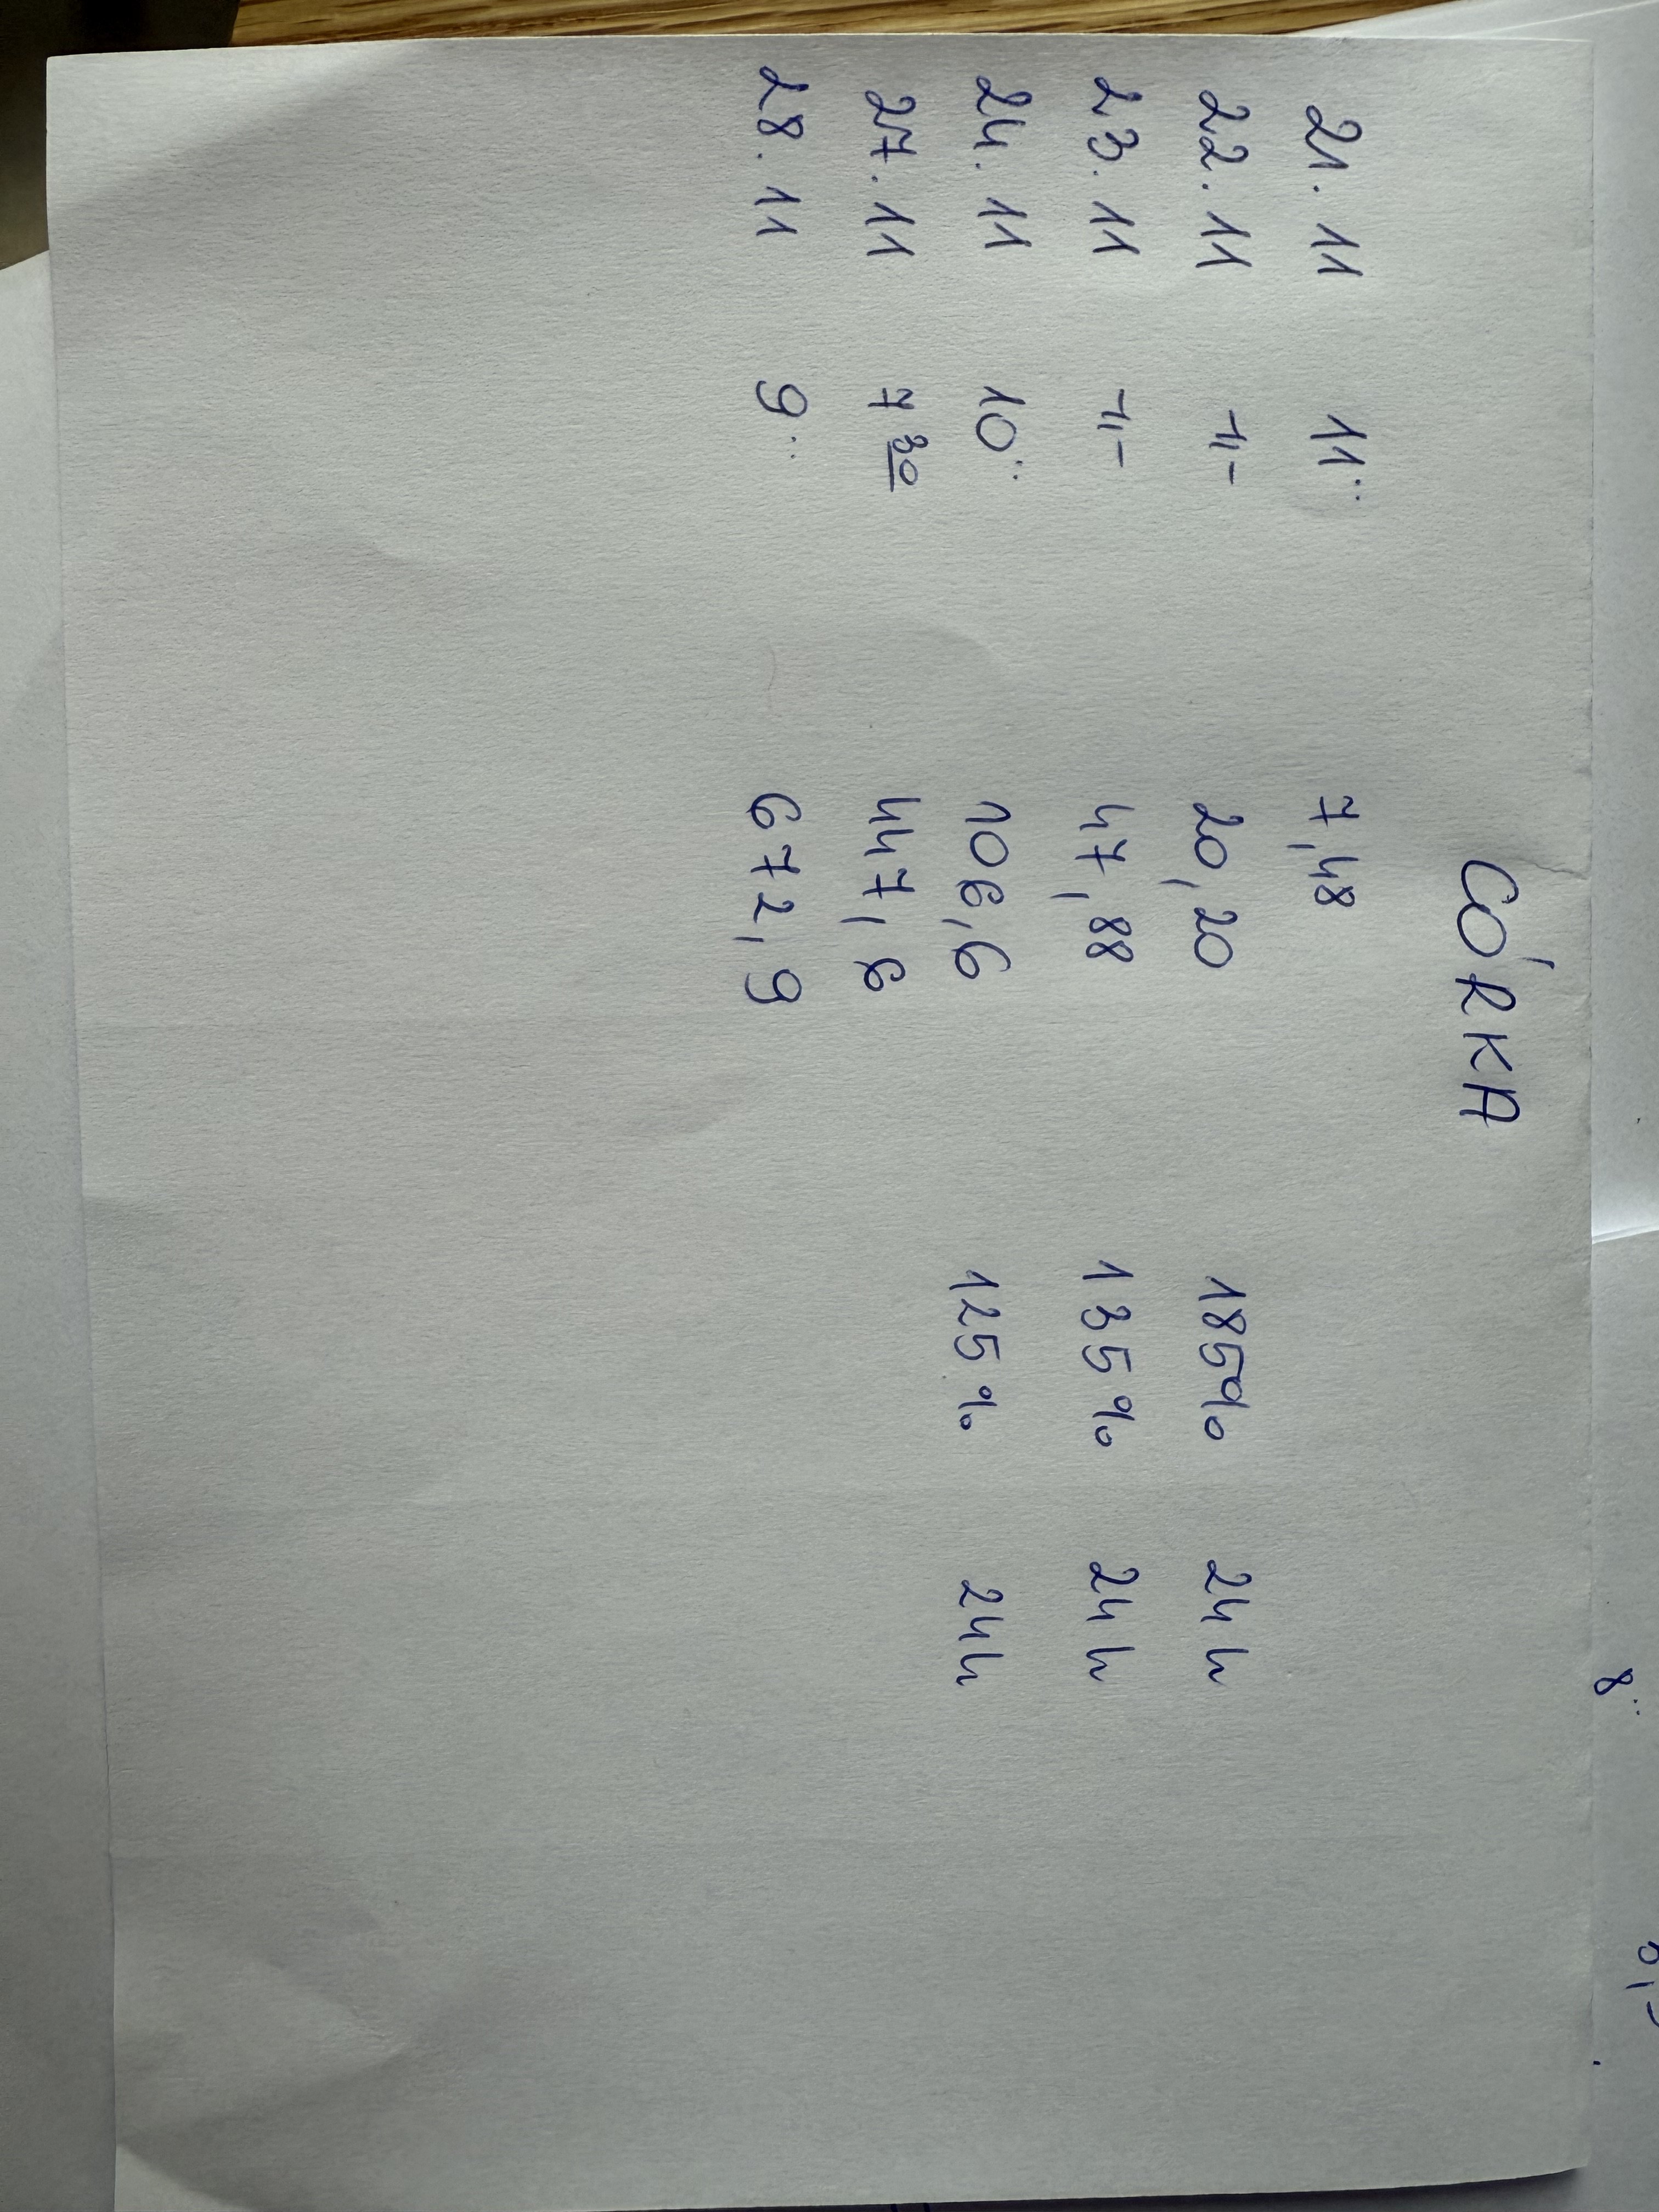 CÓRKA
21.11 11:: 7,48
22.11 -11- 20,20 185% 24h
23.11 -11- 47,88 135% 24h
24.11 10:: 106,6 125% 24h
27.11 7 30 447,6
28.11 9:: 672,9
8::